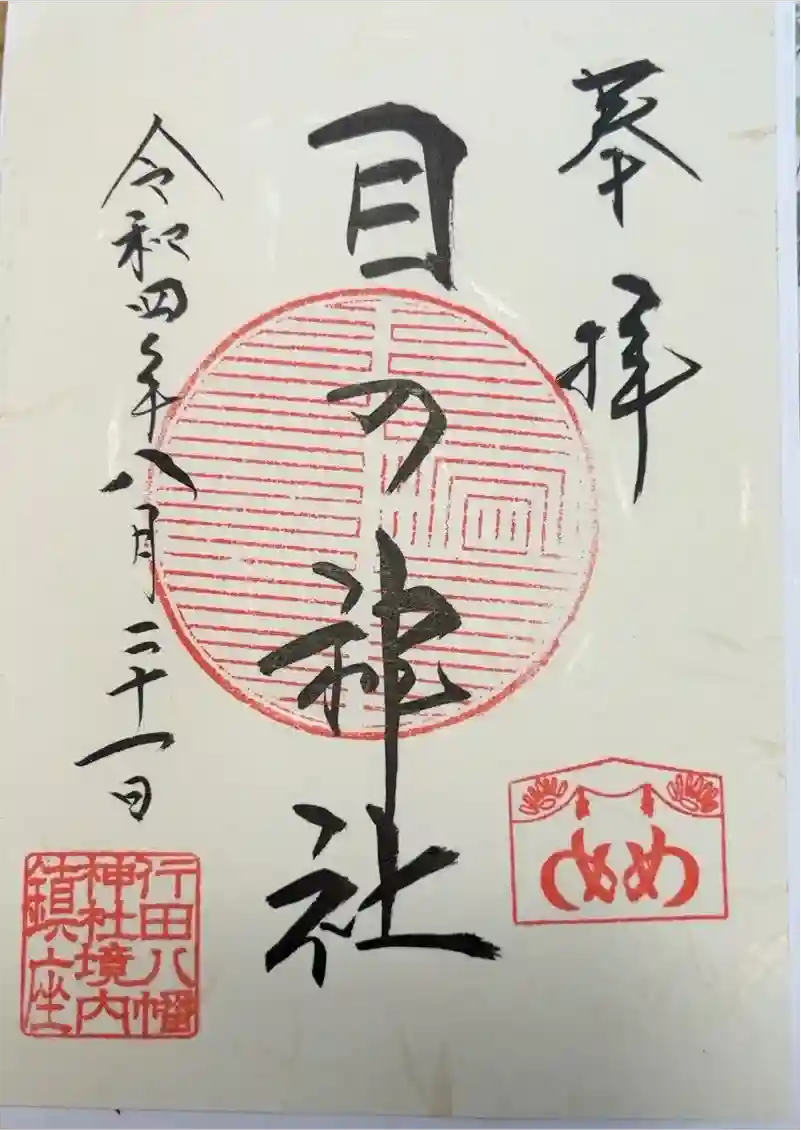 奉拝
目の神社
令和四年八月二十一日
行田八幡
神社境内
鎮座
めめ